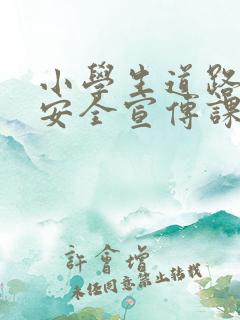 小學生道路
安全宣傳課
許會增
未经同意禁止转载